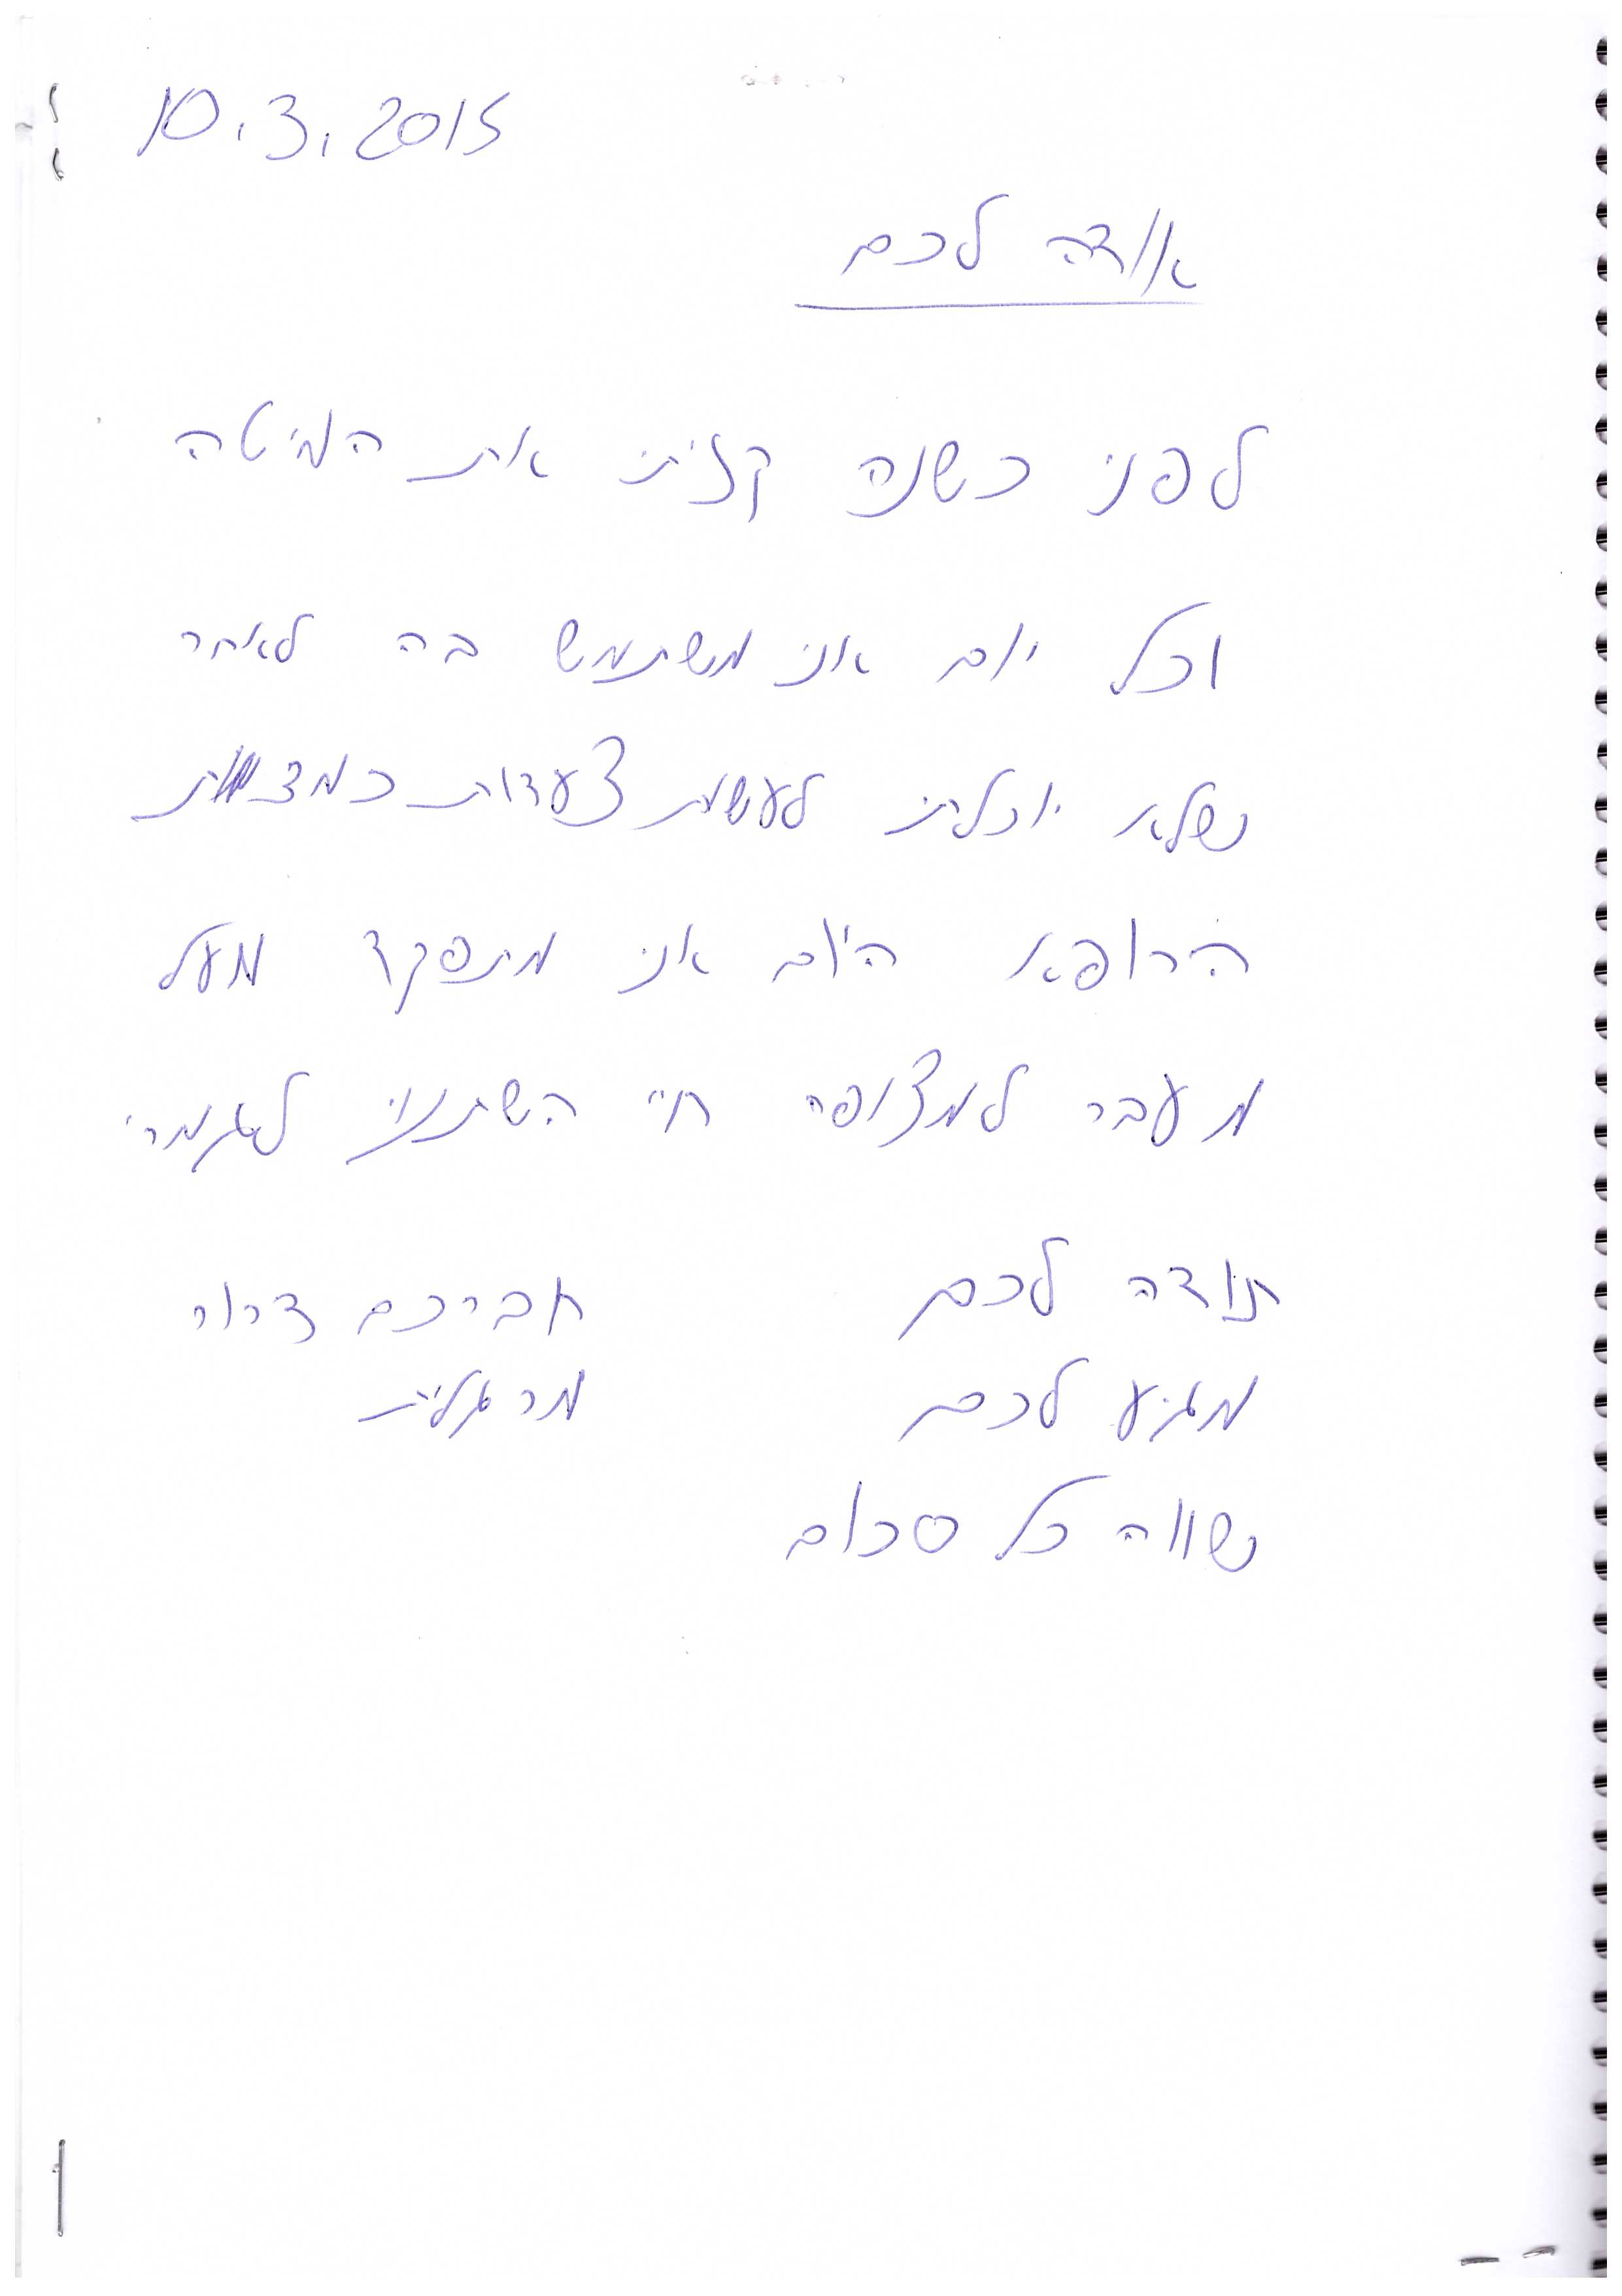 10.3.2015
אודה לכם
לפני כשנה קניתי את המיטה
וכל יום אני משתמש בה לאחר
שלא יוכלתי לעשות צעדות כמצוות
הרופא היום אני מתפקד מעל
מעבר למצופה חיי השתנו לגמרי
תודה לכם
חברכם דרור
מגיע לכם
מרגלית
שווה כל סכום